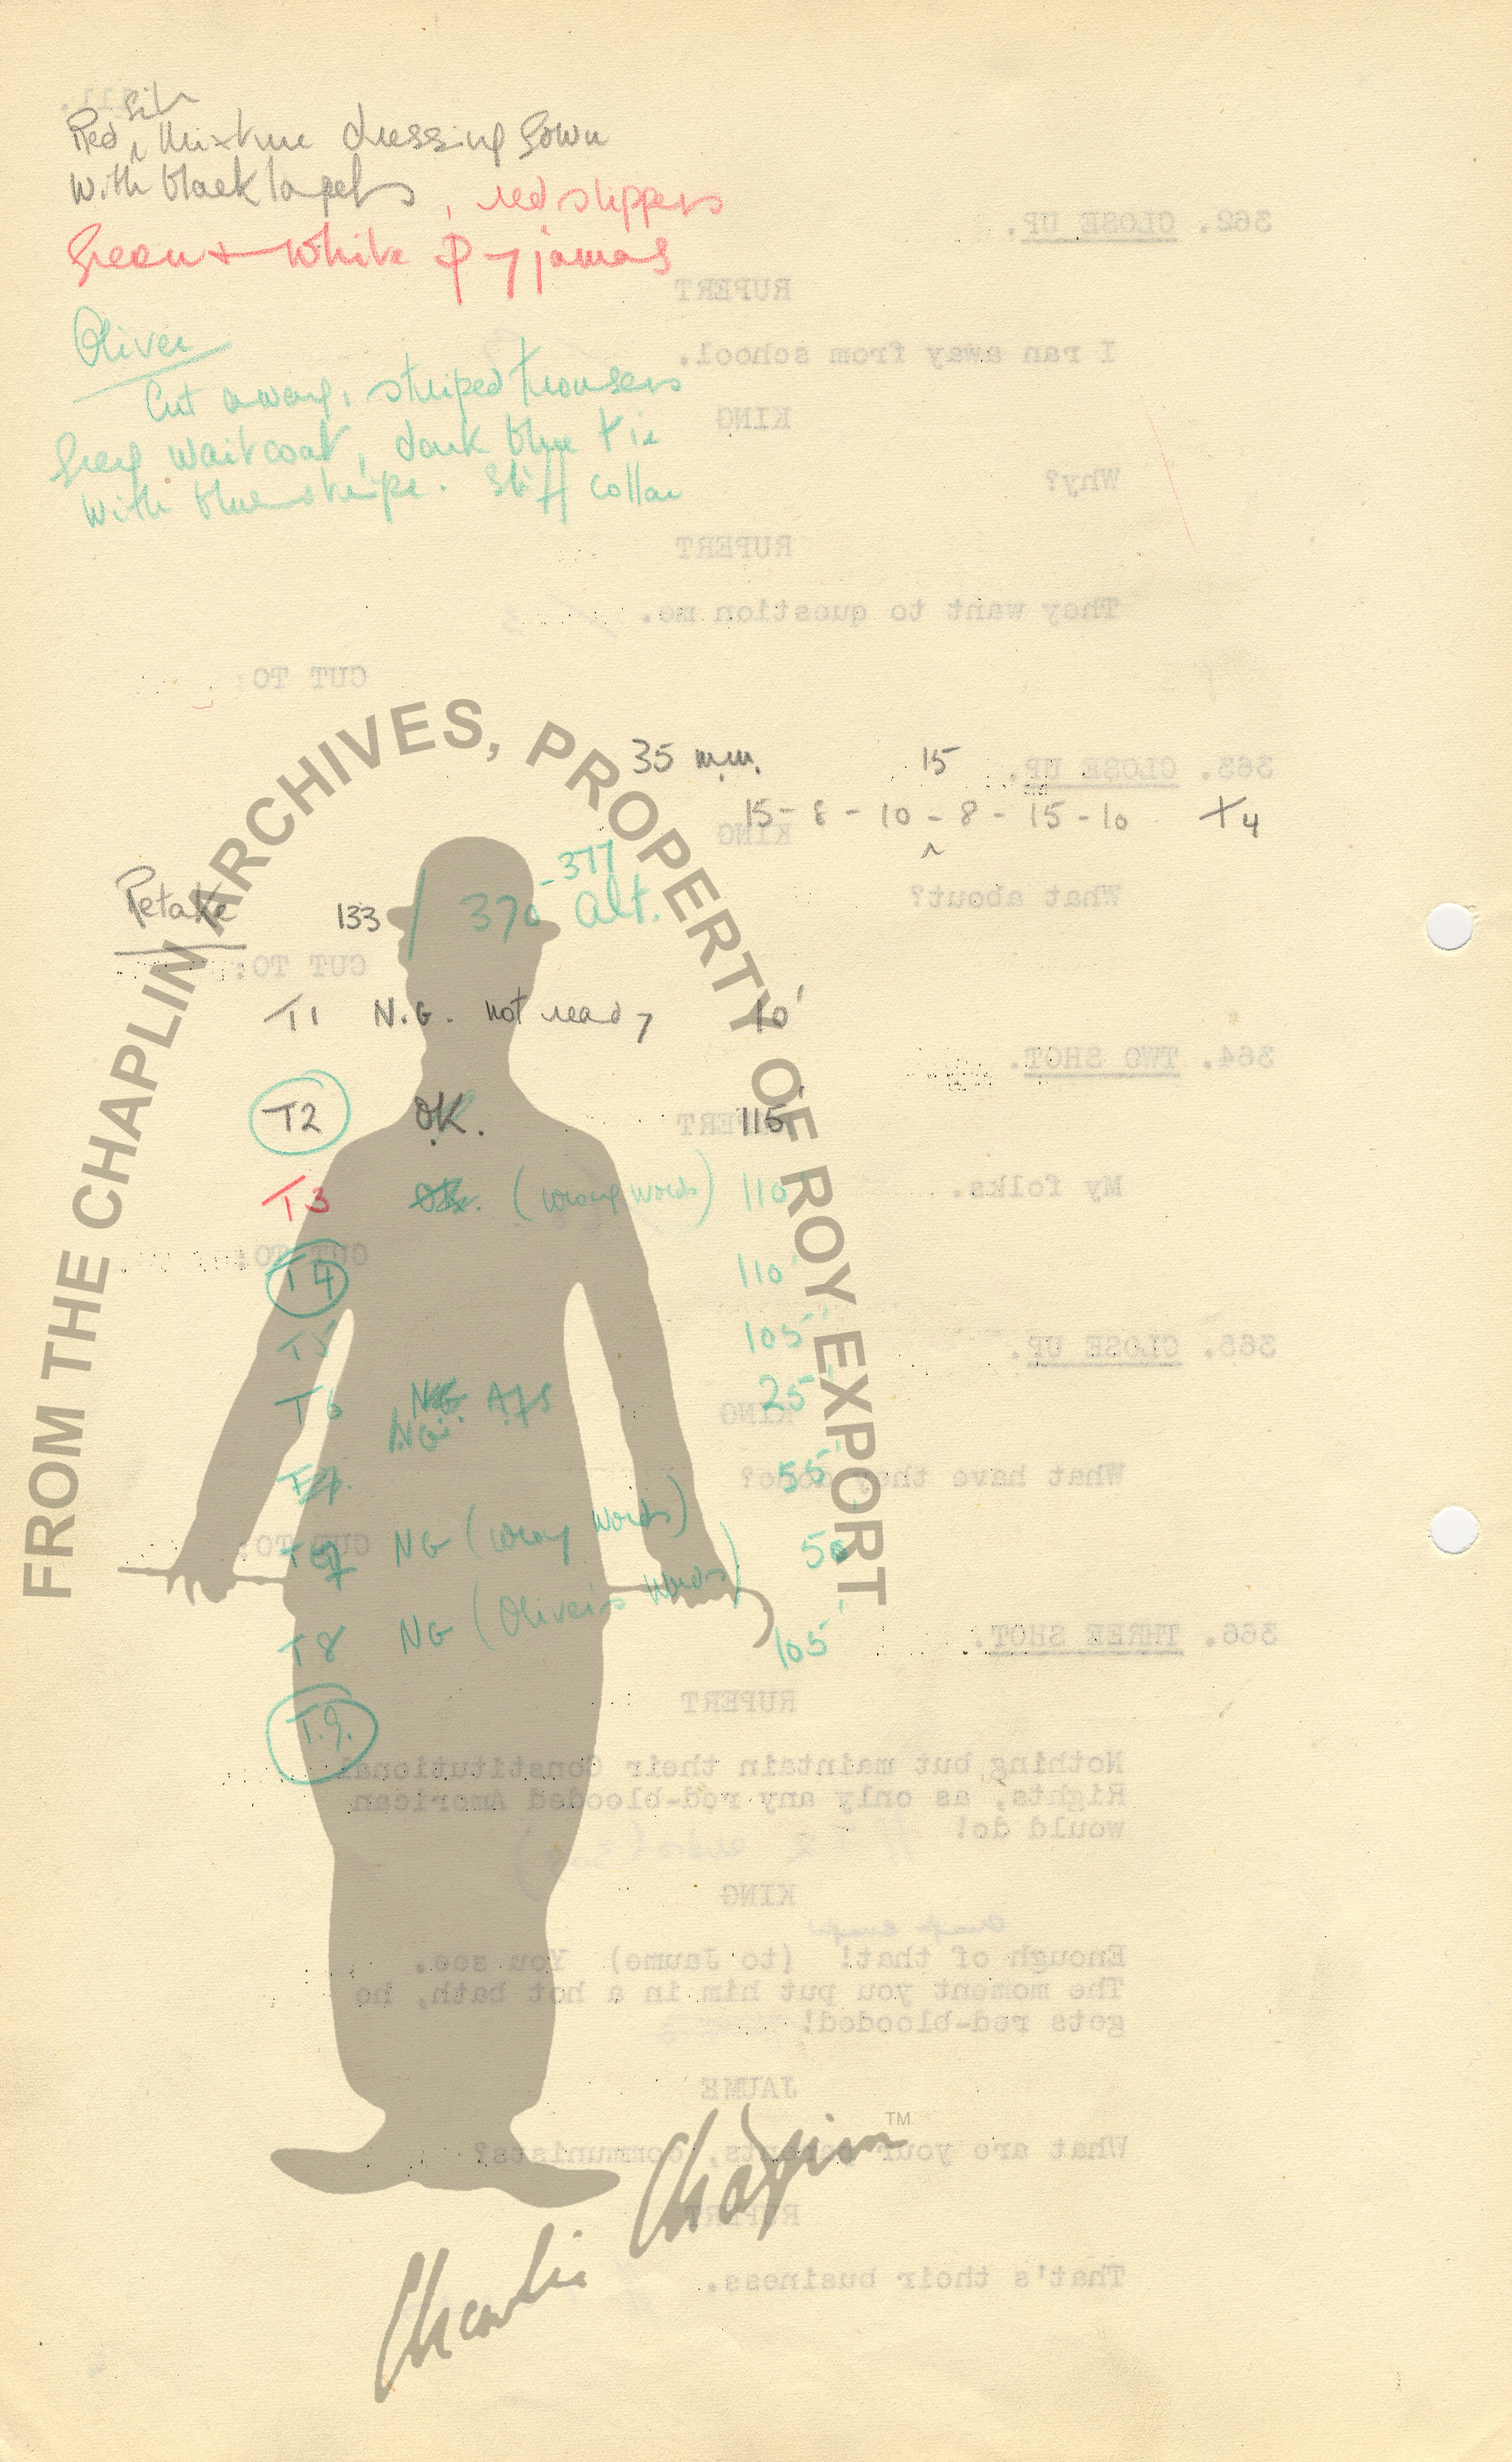 Red silk mixture dressing gown
with black lapels, red slippers
Green + White pyjamas
Oliver
Cut away, striped trousers
Grey waitcoat, dark blue tie
with blue stripe. Stiff collar
35 m.m. 15
15 - 8 - 10 - 8 - 15 - 10 X4
Retake 133 / 370 - 377 alt.
T1 N.G. not ready 10'
T2 O.K. 115'
T3 (wrong words) 110'
T4 110'
T5 105'
T6 NG 25'
55'
NG (wrong words) 50
T8 NG (Oliver's words) 105'
T.9.
FROM THE CHAPLIN ARCHIVES, PROPERTY OF ROY EXPORT
Charlie Chaplin TM
362. CLOSE UP.
RUPERT
I ran away from school.
KING
Why?
RUPERT
They want to question me.
CUT TO:
363. CLOSE UP.
KING
What about?
CUT TO:
364. TWO SHOT.
RUPERT
My folks.
CUT TO:
365. CLOSE UP.
KING
What have they done?
CUT TO:
366. THREE SHOT.
RUPERT
Nothing but maintain their Constitutional
Rights, as only any red-blooded American
would do!
KING
Enough of that! (to Jaume) You see.
The moment you put him in a hot bath, he
gets red-blooded!
JAUME
What are your parents, communists?
RUPERT
That's their business.